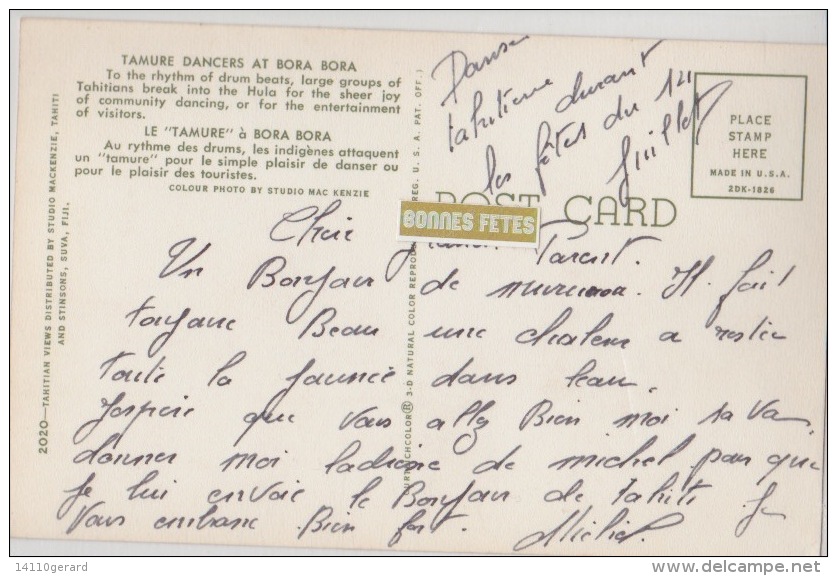 TAMURE DANCERS AT BORA BORA
To the rhythm of drum beats, large groups of
Tahitians break into the Hula for the sheer joy
of community dancing, or for the entertainment
of visitors.
LE "TAMURE" à BORA BORA
Au rythme des drums, les indigènes attaquent
un "tamure" pour le simple plaisir de danser ou
pour le plaisir des touristes.
COLOUR PHOTO BY STUDIO MAC KENZIE
2020—TAHITIAN VIEWS DISTRIBUTED BY STUDIO MACKENZIE, TAHITI
AND STINSONS, SUVA, FIJI.
3-D NATURAL COLOR REPROD
REG. U. S. A. PAT. OFF.)
Danse
tahitienne durant
les fêtes du 14
juillet
PLACE
STAMP
HERE
MADE IN U.S.A.
2DK-1826
POST CARD
BONNES FETES
Cher Parent.
Un Bonjour de mururoa. Il fait
toujour Beau une chaleur a restée
toute la journée dans leau.
Jespere que vous ally Bien moi sa va.
donner moi ladresse de michel pour que
je lui envoie le Bonjour de tahiti je
Vous embrasse Bien fort. Michel.
14110gerard
www.delcampe.net